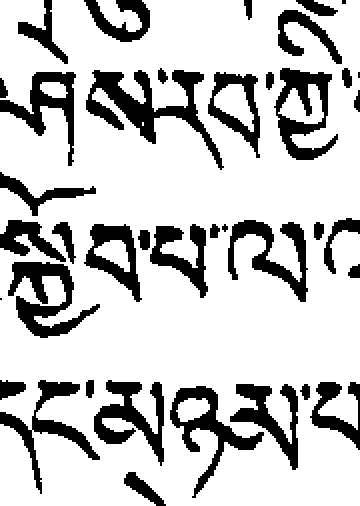 ཤེས་རབ་ཀྱི་
སྐྱོབ་པ་ལ་
དང་མཉམ་པ